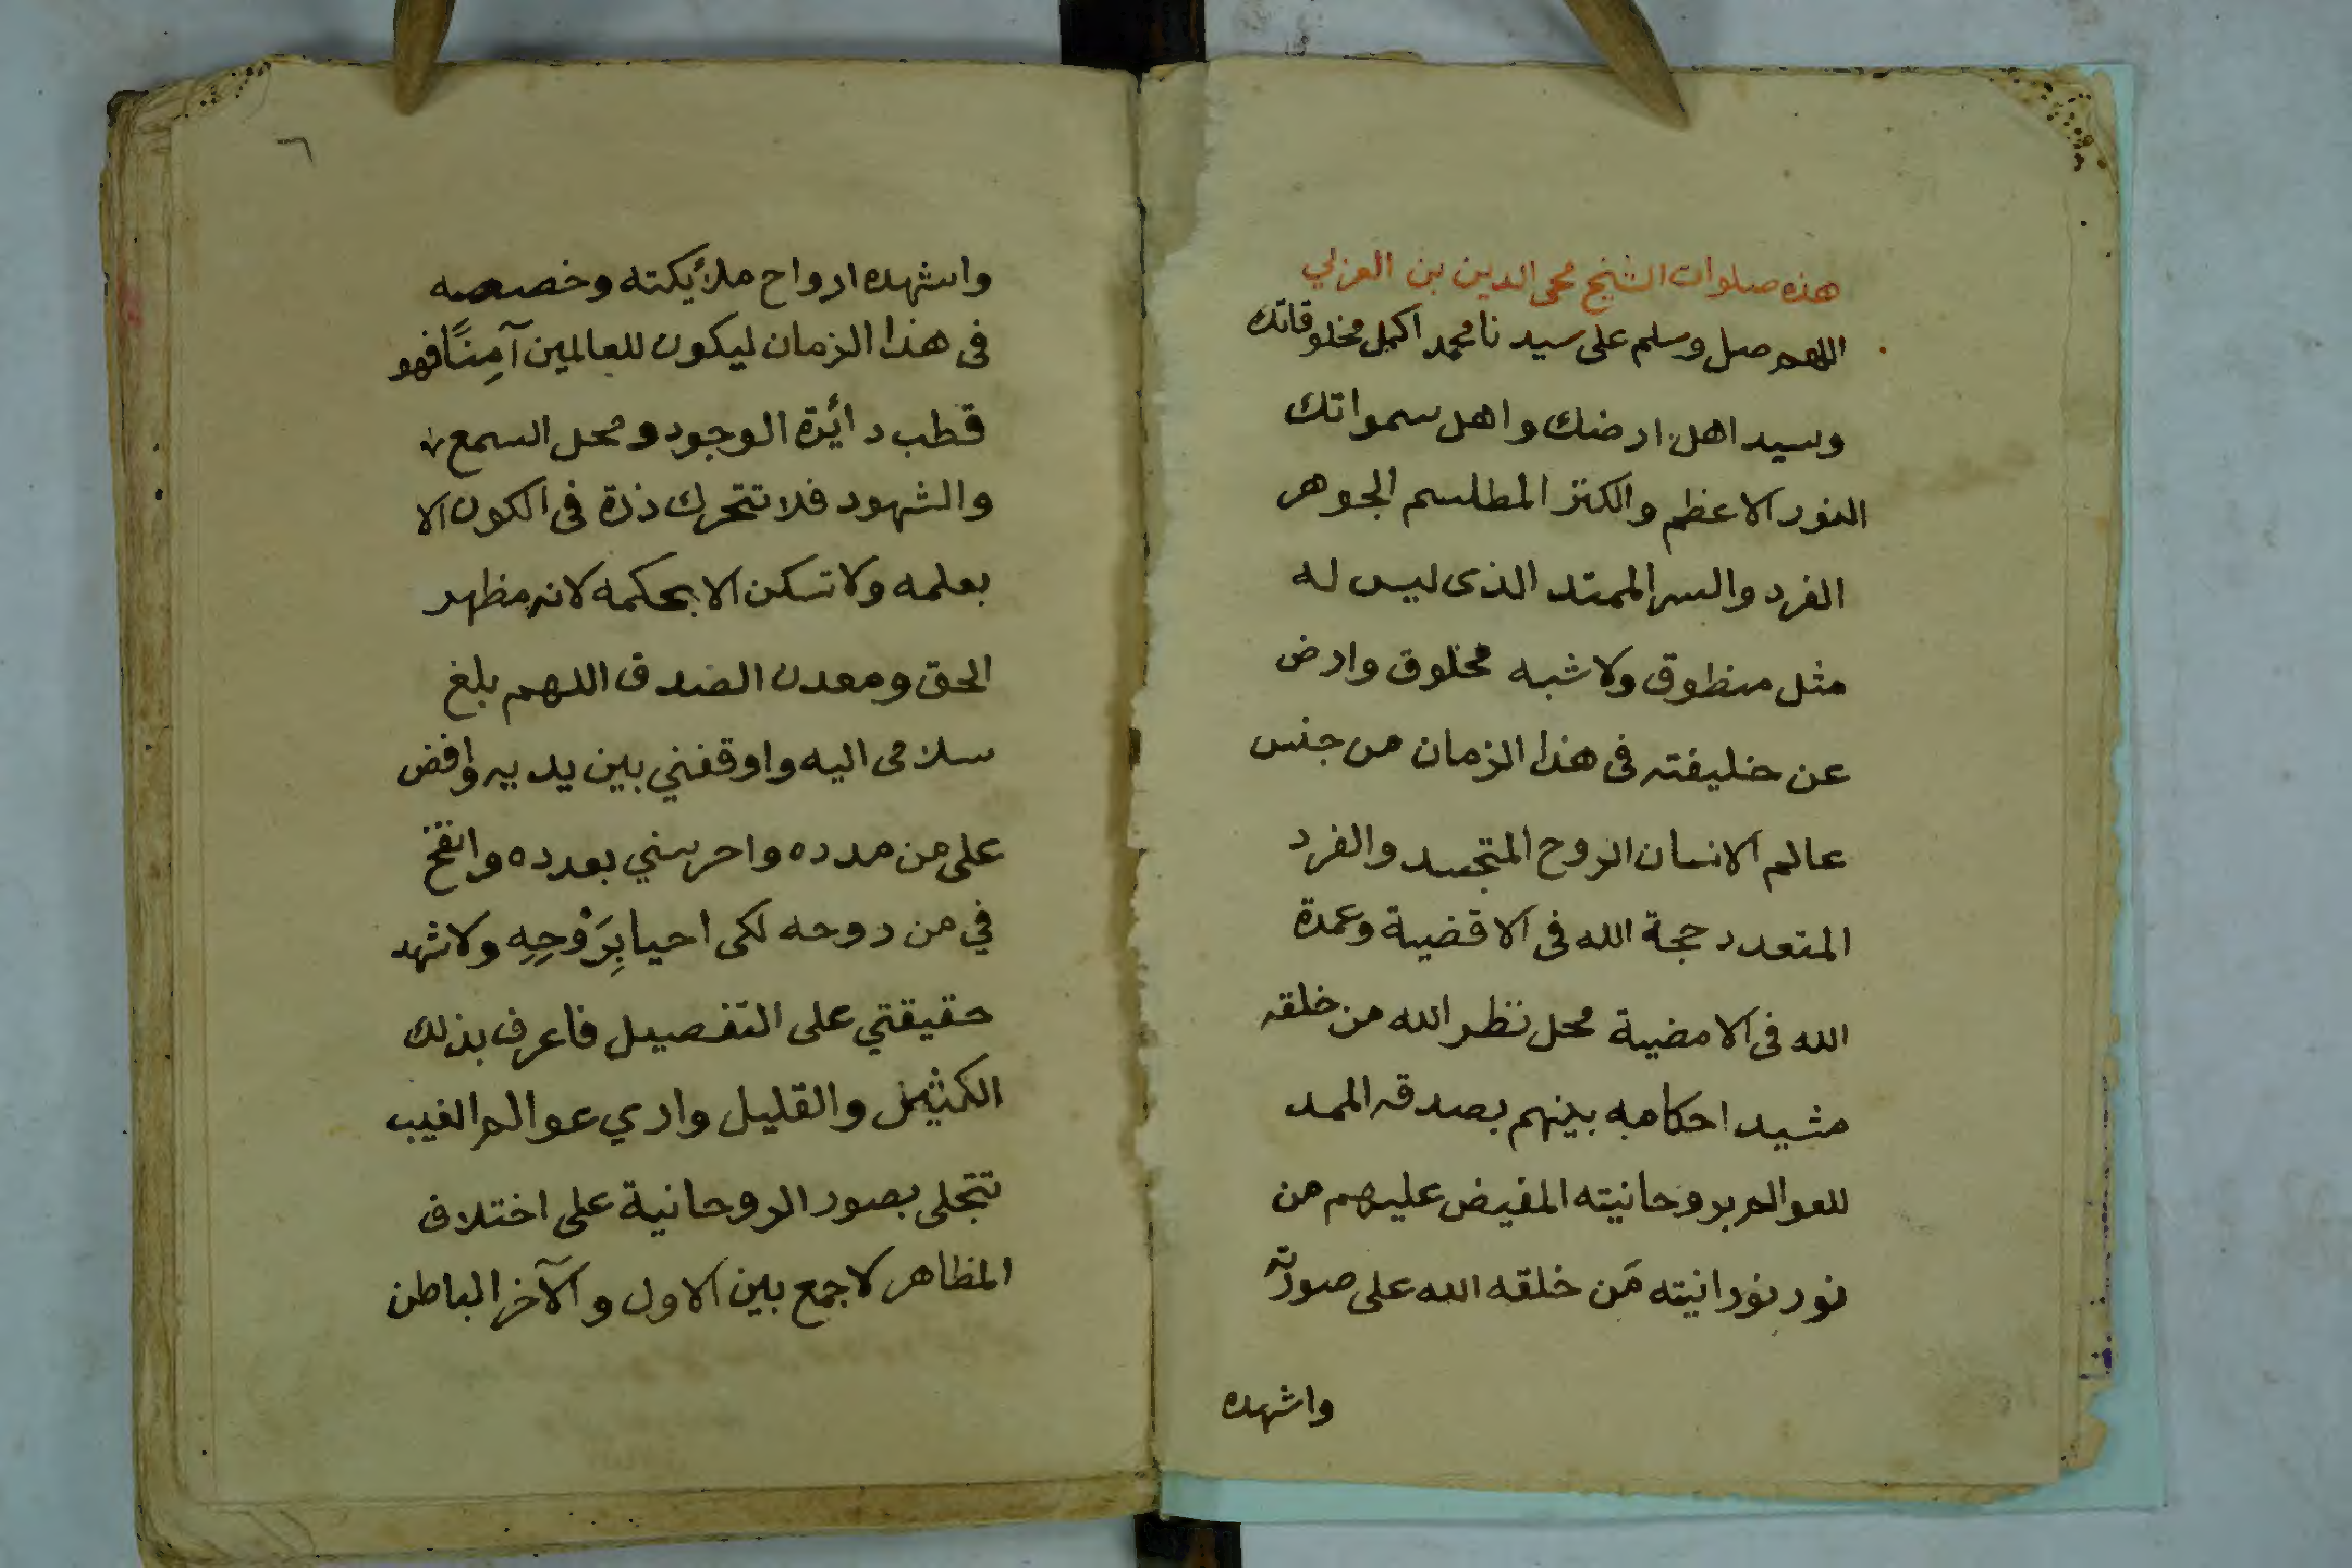 هذه صلوات الشيخ محى الدين بن العربي
اللهم صل وسلم على سيدنا محمد اكمل مخلوقاتك
وسيد اهل ارضك واهل سمواتك
النور الاعظم والكنز المطلسم الجوهر
الفرد والسر الممتد الذى ليس له
مثل منطوق ولا شبه مخلوق وارض
عن خليفته فى هذا الزمان من جنس
عالم الانسان الروح المتجسد والفرد
المتعدد حجة الله فى الاقضية وعمدة
الله فى الامضية محل نظر الله من خلقه
مشيد احكامه بينهم بصدقه الممد
للعوالم بروحانيته المفيض عليهم من
نور نورانيته مَن خلقه الله على صورته
واشهده
٦
واشهده ارواح ملأيكته وخصصه
فى هذا الزمان ليكون للعالمين آمِنًا فهو
قطب دائرة الوجود ومحل السمع
والشهود فلا تتحرك ذرة فى الكون الا
بعلمه ولا تسكن الا بحكمه لانه مظهر
الحق ومعدن الصدق اللهم بلغ
سلامى اليه واوقفني بين يديه وافض
على من مدده واحرسني بعدده وانفخ
في من روحه لكى احيا بِرَوْحِهِ ولاشهد
حقيقتي على التفصيل فاعرف بذلك
الكثير والقليل وارى عوالم الغيب
تتجلى بصور الروحانية على اختلاف
المظاهر لاجمع بين الاول والآخر الباطن